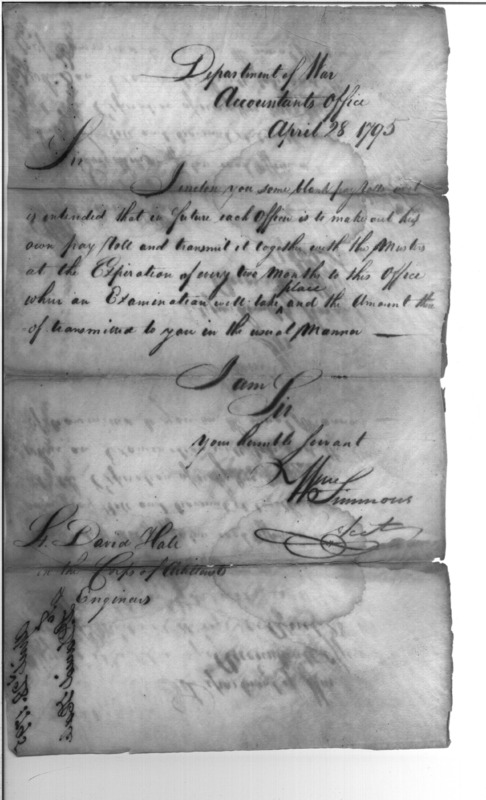 Department of War
Accountants Office
April 28 1795
Sir
I inclose you some blank pay Rolls and
is intended that in future each Officer is to make out his
own pay Roll and transmit it together with the Musters
at the Expiration of every two Months to this Office
place
when an Examination will take and the Amount there
of transmitted to you in the usual Manner
I am
Sir
your humble Servant
Wm Simmons
Acct
Lt. David Hale
in the Corps of Artillerists
& Engineers